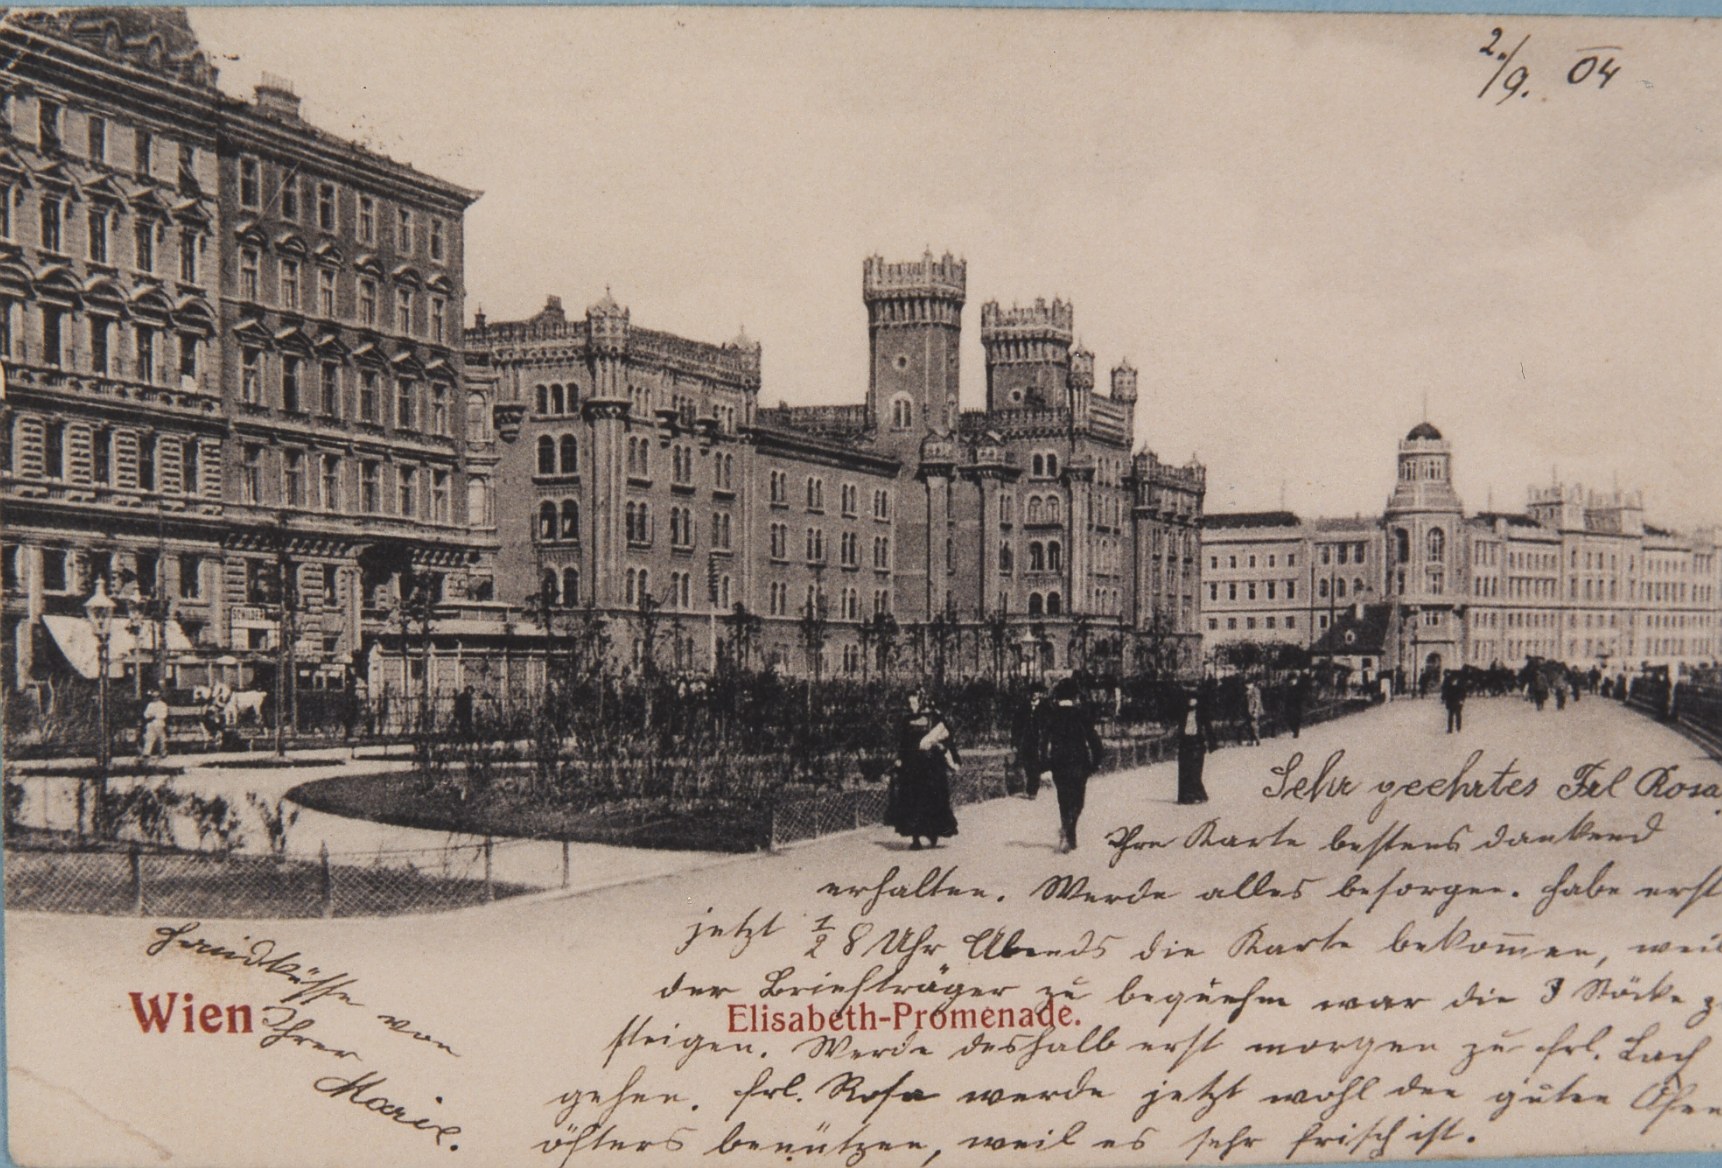 2./9. 04
Sehr geehrtes Frl Rosa,
Ihre Karte bestens dankend
erhalten. Werde alles besorgen. habe erst
jetzt ½ 8 Uhr Abends die Karte bekom̅en, weil
der Briefträger zu bequehm war die 3 Stöcke z
steigen. Werde deshalb erst morgen zu frl. Lach
gehen. frl. Rosa werde jetzt wohl den guten Ofen
öfters benützen, weil es sehr frisch ist.
Handküsse von
Ihrer
Marie.
Wien
Elisabeth-Promenade.